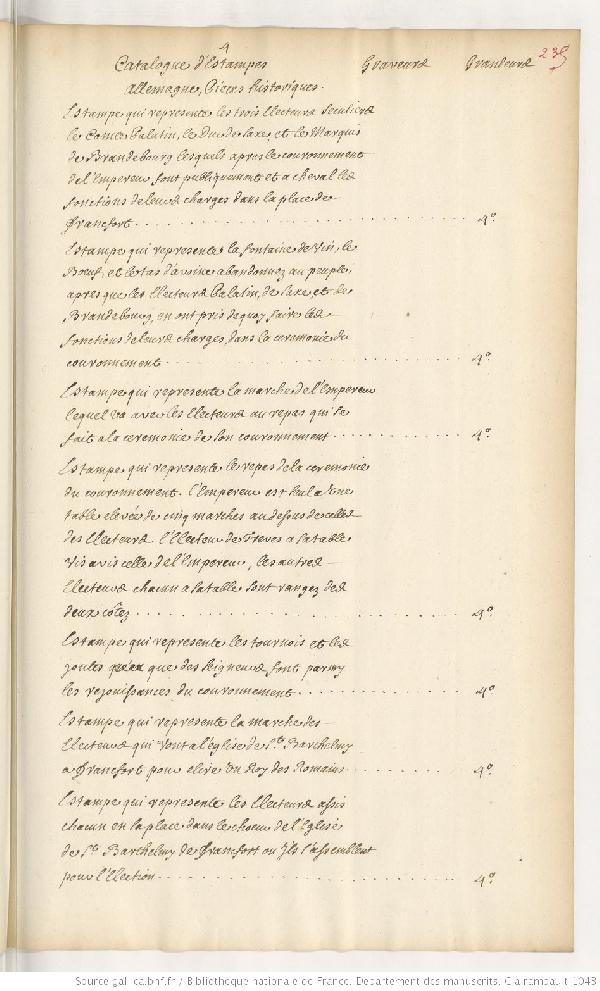 4
235
Catalogue d'Estampes Graveurs Grandeurs
Allemagne, Pieces historiques.
Estampe qui represente les trois Electeurs seculiers
le Comte Palatin, le Duc de Saxe, et le Marquis
de Brandebourg lesquels apres le couronnement
de l'Empereur font publiquement et a cheval les
fonctions de leurs charges dans la place de
Francfort 4º.
Estampe qui represente la fontaine de Vin, le
Boeuf, et le tas d'avoine abandonnez au peuple,
apres que les Electeurs Palatin, de Saxe, et de
Brandebourg, en ont pris de quoy faire les
fonctions de leurs charges, dans la ceremonie du
couronnement 4º.
Estampe qui represente la marche de l'Empereur
lequel va avec les Electeurs au repas qui se
fait a la ceremonie de son couronnement 4º.
Estampe qui represente le repas de la ceremonie
du couronnement. l'Empereur est seul a Une
table elevée de cinq marches au dessus de celles
des Electeurs l'Electeur de Treves a sa table
vis avis celle de l'Empereur, les autres
Electeurs chacun a sa table sont rangez des
deux côtez 4º.
Estampe qui represente les tournois et les
joutes que des Seigneurs font parmy
les rejouissances du couronnement 4º.
Estampe qui represente la marche des
Electeurs qui vont a l'église de St. Barthelmy
a Francfort pour elire Un Roy des Romains 4º.
Estampe qui represente les Electeurs assis
chacun en sa place dans le choeur de l'Eglise
de St. Barthelmy de Francfort ou Ils s'assemblent
pour l'Election 4º.
Source gallica.bnf.fr / Bibliothèque nationale de France. Département des manuscrits. Clairambault 1043